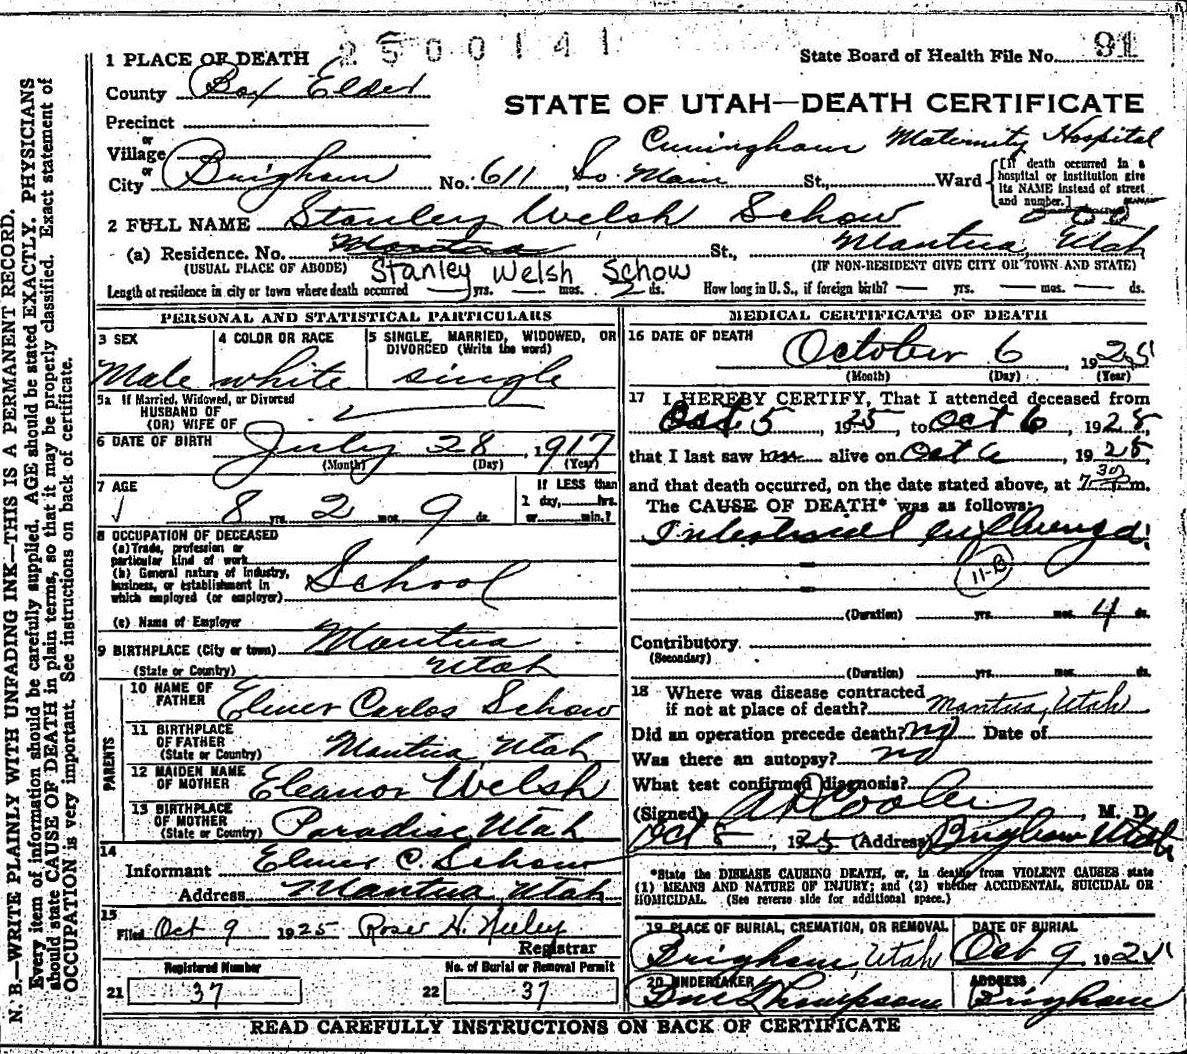 2500141
State Board of Health File No. 91
1 PLACE OF DEATH
County Box Elder
STATE OF UTAH—DEATH CERTIFICATE
Precinct
or
Village
Cuningham Maternity Hospital
or
City Brigham No. 611 So Main St., Ward
[If death occurred in a hospital or institution give its NAME instead of street and number.]
2 FULL NAME Stanley Welsh Schow
(a) Residence. No. Mantua St., Mantua, Utah
(USUAL PLACE OF ABODE) Stanley Welsh Schow (IF NON-RESIDENT GIVE CITY OR TOWN AND STATE)
Length of residence in city or town where death occurred — yrs. — mos. 2 ds. How long in U. S., if foreign birth? — yrs. — mos. — ds.
PERSONAL AND STATISTICAL PARTICULARS
3 SEX 4 COLOR OR RACE 5 SINGLE, MARRIED, WIDOWED, OR DIVORCED (Write the word)
Male white single
5a If Married, Widowed, or Divorced
HUSBAND OF
(OR) WIFE OF
6 DATE OF BIRTH July 28, 1917
(Month) (Day) (Year)
7 AGE If LESS than
8 yrs. 2 mos. 9 ds. 1 day, hrs.
or min.?
8 OCCUPATION OF DECEASED
(a) Trade, profession or
particular kind of work
(b) General nature of industry,
business, or establishment in
which employed (or employer) School
(c) Name of Employer
9 BIRTHPLACE (City or town) Mantua
(State or Country) Utah
PARENTS
10 NAME OF FATHER Elmer Carlos Schow
11 BIRTHPLACE OF FATHER (State or Country) Mantua, Utah
12 MAIDEN NAME OF MOTHER Eleanor Welsh
13 BIRTHPLACE OF MOTHER (State or Country) Paradise, Utah
14
Informant Elmer C. Schow
Address Mantua, Utah
15
Filed Oct 9 1925 Rose H. Neeley
Registrar
Registered Number No. of Burial or Removal Permit
21 37 22 37
MEDICAL CERTIFICATE OF DEATH
16 DATE OF DEATH October 6 1925
(Month) (Day) (Year)
17 I HEREBY CERTIFY, That I attended deceased from
Oct 5, 1925, to Oct 6, 1925,
that I last saw him alive on Oct 6, 1925,
and that death occurred, on the date stated above, at 7 30 P. m.
The CAUSE OF DEATH* was as follows:
Intestinal influenza.
11-B
(Duration) yrs. mos. 4 ds.
Contributory
(Secondary)
(Duration) yrs. mos. ds.
18 Where was disease contracted
if not at place of death? Mantua, Utah
Did an operation precede death? no Date of
Was there an autopsy? no
What test confirmed diagnosis?
(Signed) A D Cooley, M. D.
Oct 8, 1925 (Address) Brigham Utah
*State the DISEASE CAUSING DEATH, or, in deaths from VIOLENT CAUSES state
(1) MEANS AND NATURE OF INJURY; and (2) whether ACCIDENTAL, SUICIDAL OR
HOMICIDAL. (See reverse side for additional space.)
19 PLACE OF BURIAL, CREMATION, OR REMOVAL DATE OF BURIAL
Brigham, Utah Oct 9 1925
20 UNDERTAKER ADDRESS
Thompson Brigham
READ CAREFULLY INSTRUCTIONS ON BACK OF CERTIFICATE
N. B.—WRITE PLAINLY WITH UNFADING INK—THIS IS A PERMANENT RECORD.
Every item of information should be carefully supplied. AGE should be stated EXACTLY. PHYSICIANS
should state CAUSE OF DEATH in plain terms, so that it may be properly classified. Exact statement of
OCCUPATION is very important. See instructions on back of certificate.